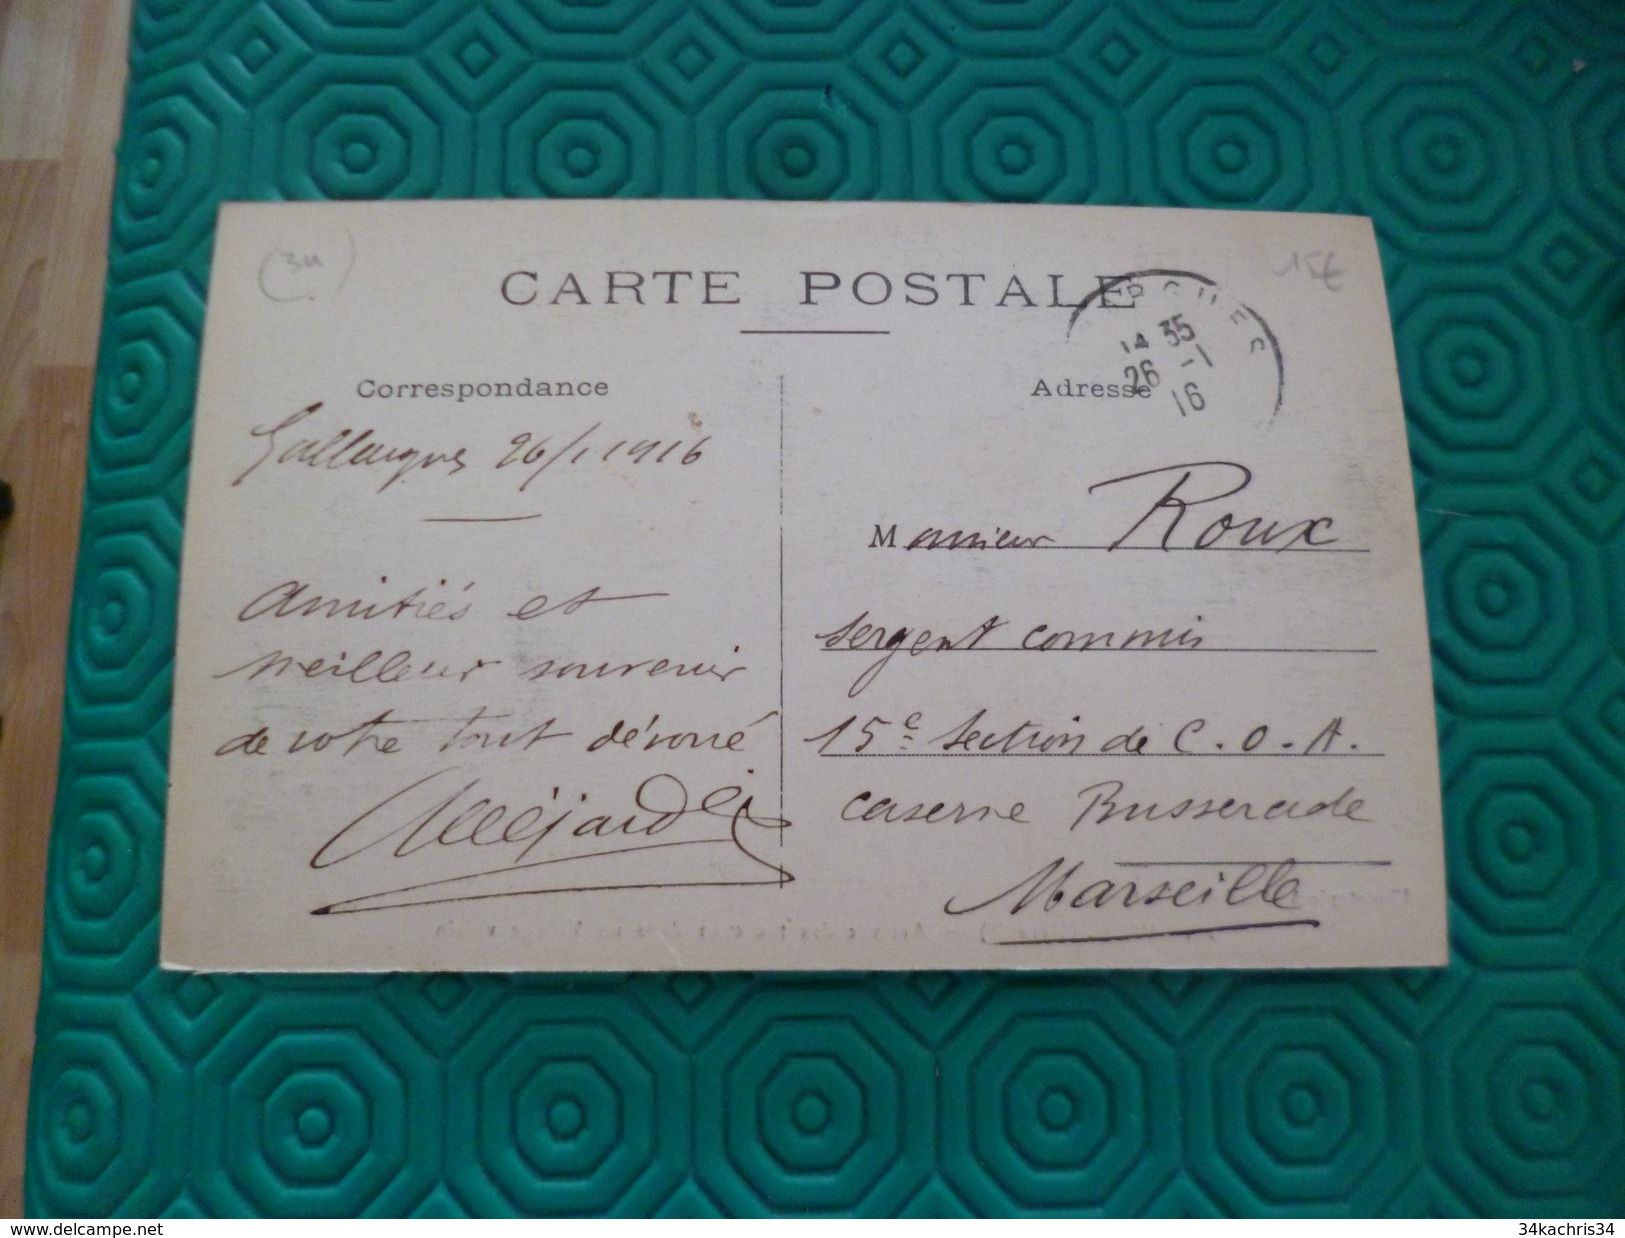 (34)
15€
CARTE POSTALE
14 35
26 -1
16
Correspondance
Gallargues 26/1 1916
Amitiés et
meilleur souvenir
de votre tout dévoué
Adresse
Monsieur Roux
sergent commis
15e Section de C.O.A.
caserne Busserade
Marseille
www.delcampe.net
34kachris34